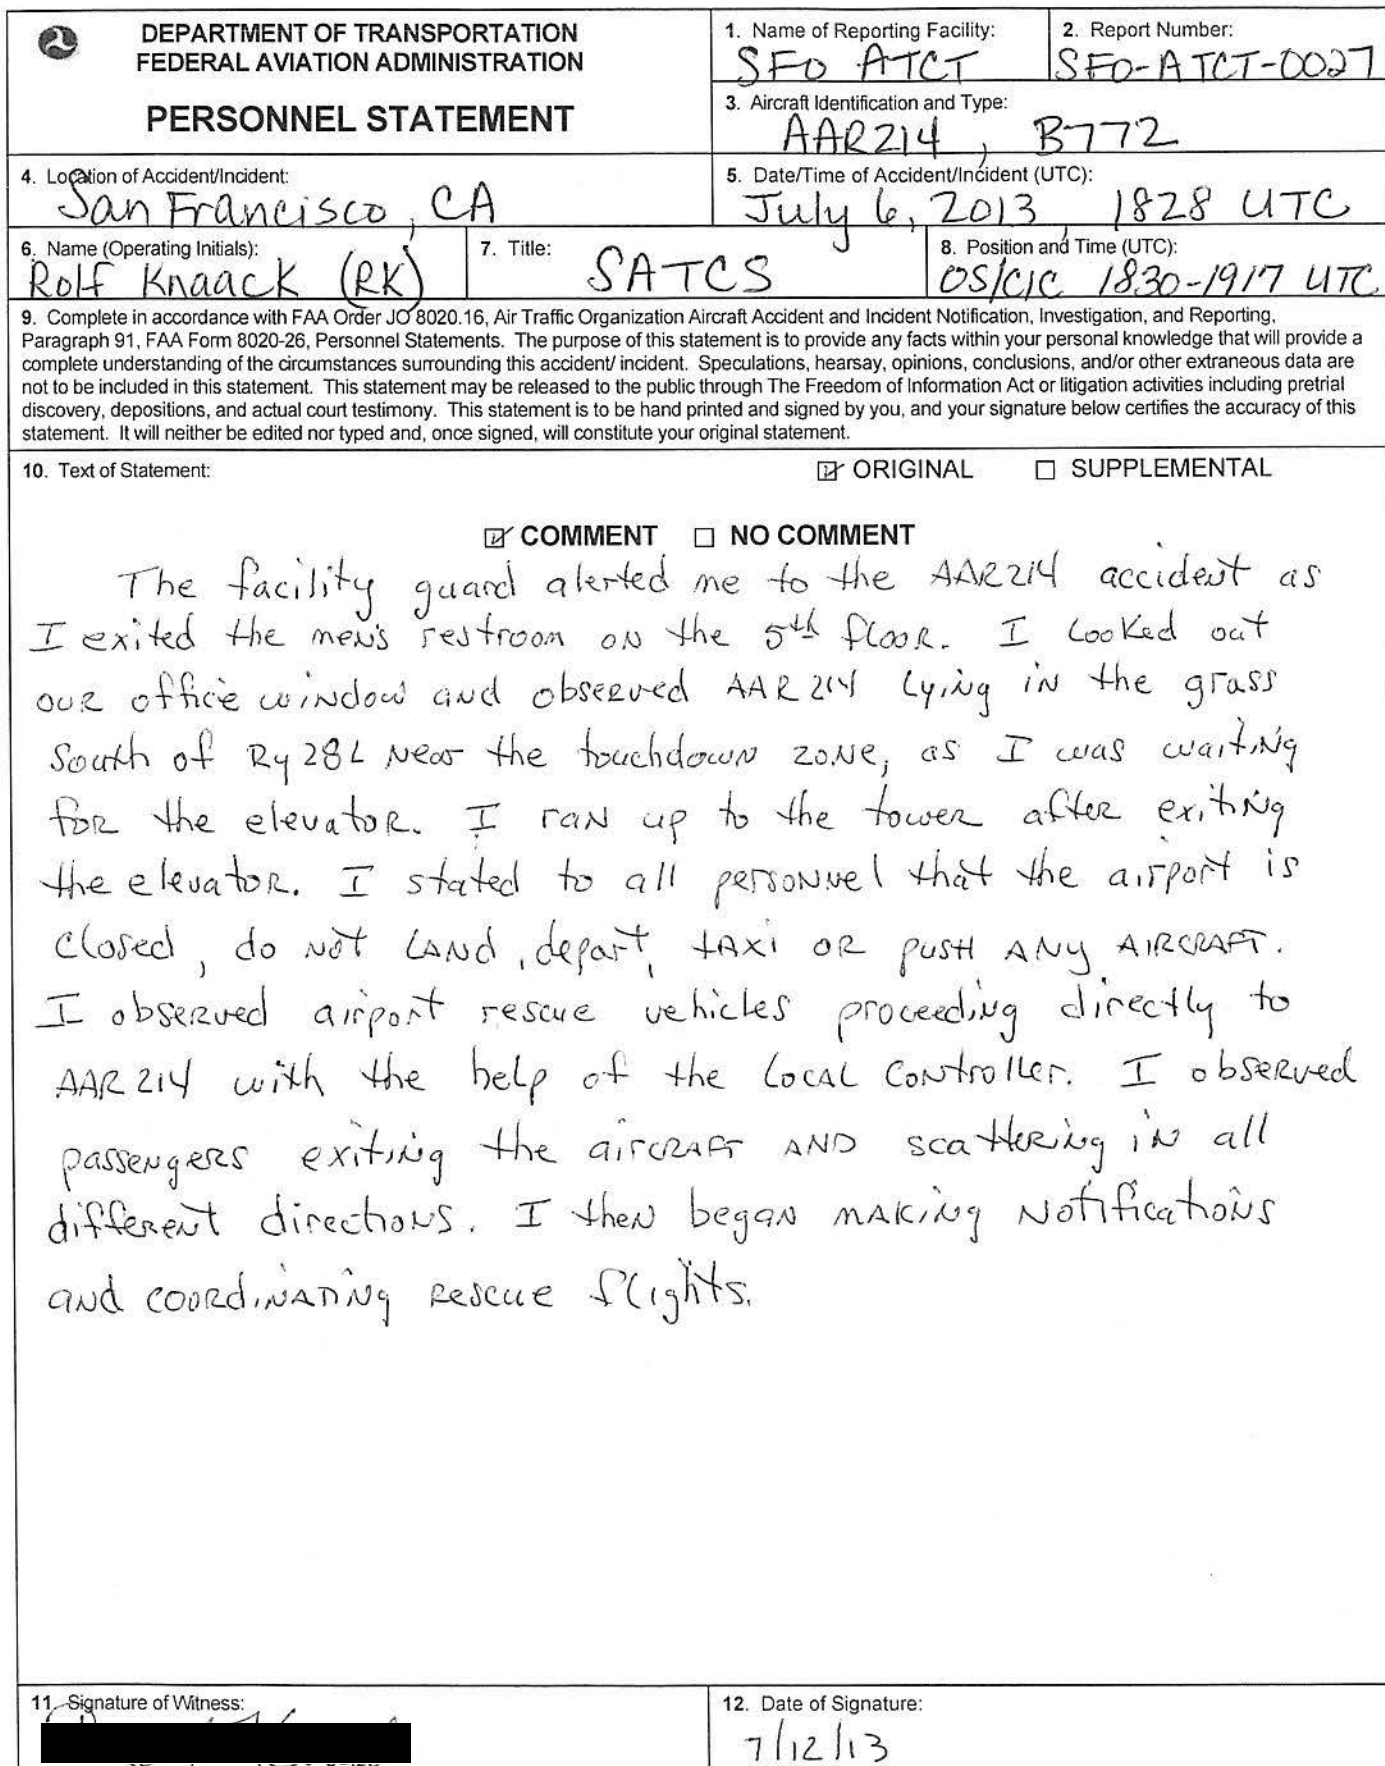 DEPARTMENT OF TRANSPORTATION
FEDERAL AVIATION ADMINISTRATION
PERSONNEL STATEMENT
1. Name of Reporting Facility:
SFO ATCT
2. Report Number:
SFO-ATCT-0027
3. Aircraft Identification and Type:
AAR214, B772
4. Location of Accident/Incident:
San Francisco, CA
5. Date/Time of Accident/Incident (UTC):
July 6, 2013 1828 UTC
6. Name (Operating Initials):
Rolf Knaack (RK)
7. Title:
SATCS
8. Position and Time (UTC):
OS/CIC 1830-1917 UTC
9. Complete in accordance with FAA Order JO 8020.16, Air Traffic Organization Aircraft Accident and Incident Notification, Investigation, and Reporting,
Paragraph 91, FAA Form 8020-26, Personnel Statements. The purpose of this statement is to provide any facts within your personal knowledge that will provide a
complete understanding of the circumstances surrounding this accident/ incident. Speculations, hearsay, opinions, conclusions, and/or other extraneous data are
not to be included in this statement. This statement may be released to the public through The Freedom of Information Act or litigation activities including pretrial
discovery, depositions, and actual court testimony. This statement is to be hand printed and signed by you, and your signature below certifies the accuracy of this
statement. It will neither be edited nor typed and, once signed, will constitute your original statement.
10. Text of Statement:
ORIGINAL
SUPPLEMENTAL
COMMENT
NO COMMENT
The facility guard alerted me to the AAR214 accident as
I exited the men's restroom on the 5th floor. I looked out
our office window and observed AAR 214 lying in the grass
South of Ry 28L near the touchdown zone, as I was waiting
for the elevator. I ran up to the tower after exiting
the elevator. I stated to all personnel that the airport is
closed, do not land, depart, taxi or push any aircraft.
I observed airport rescue vehicles proceeding directly to
AAR 214 with the help of the Local Controller. I observed
passengers exiting the aircraft and scattering in all
different directions. I then began making notifications
and coordinating rescue flights.
11. Signature of Witness:
12. Date of Signature:
7/12/13